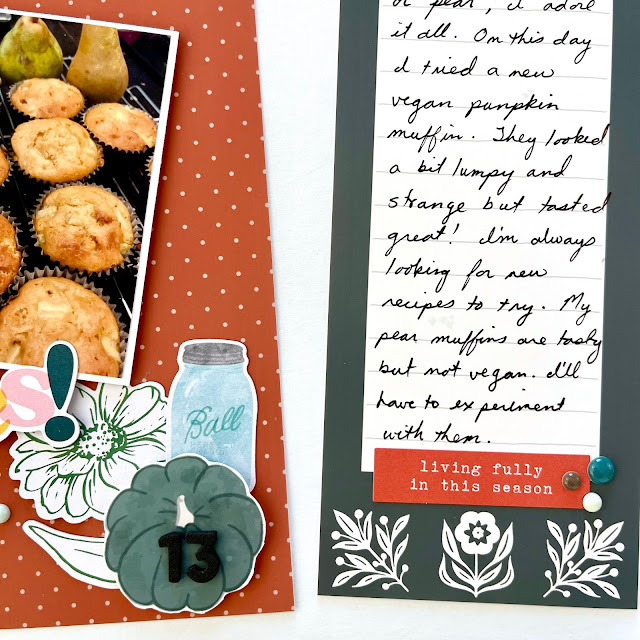 s!
Ball
13
or pear, I adore
it all. On this day
I tried a new
vegan pumpkin
muffin. They looked
a bit lumpy and
strange but tasted
great! I'm always
looking for new
recipes to try. My
pear muffins are tasty
but not vegan. I'll
have to experiment
with them.
living fully
in this season